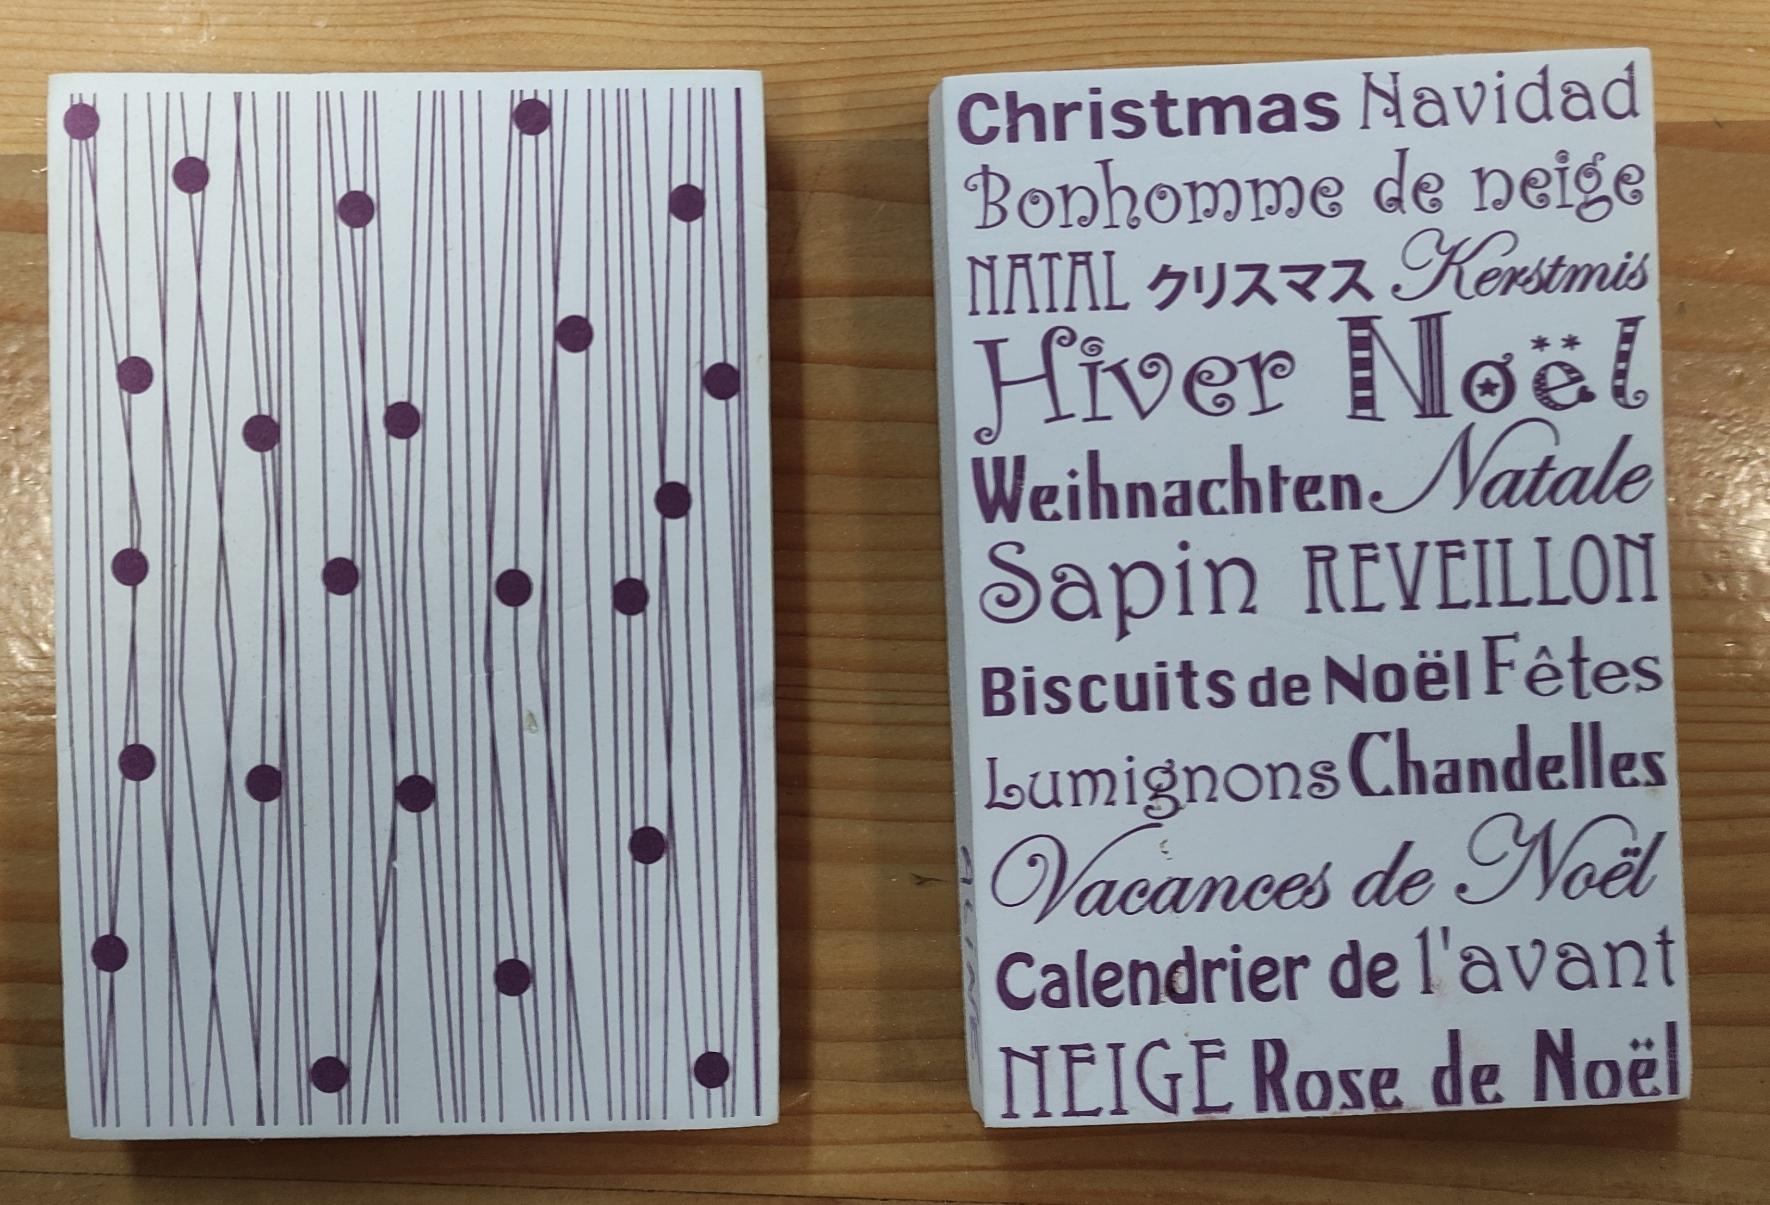 Christmas Navidad
Bonhomme de neige
NATAL クリスマス Kerstmis
Hiver Noël
Weihnachten Natale
Sapin REVEILLON
Biscuits de Noël Fêtes
Lumignons Chandelles
Vacances de Noël
Calendrier de l'avant
NEIGE Rose de Noël